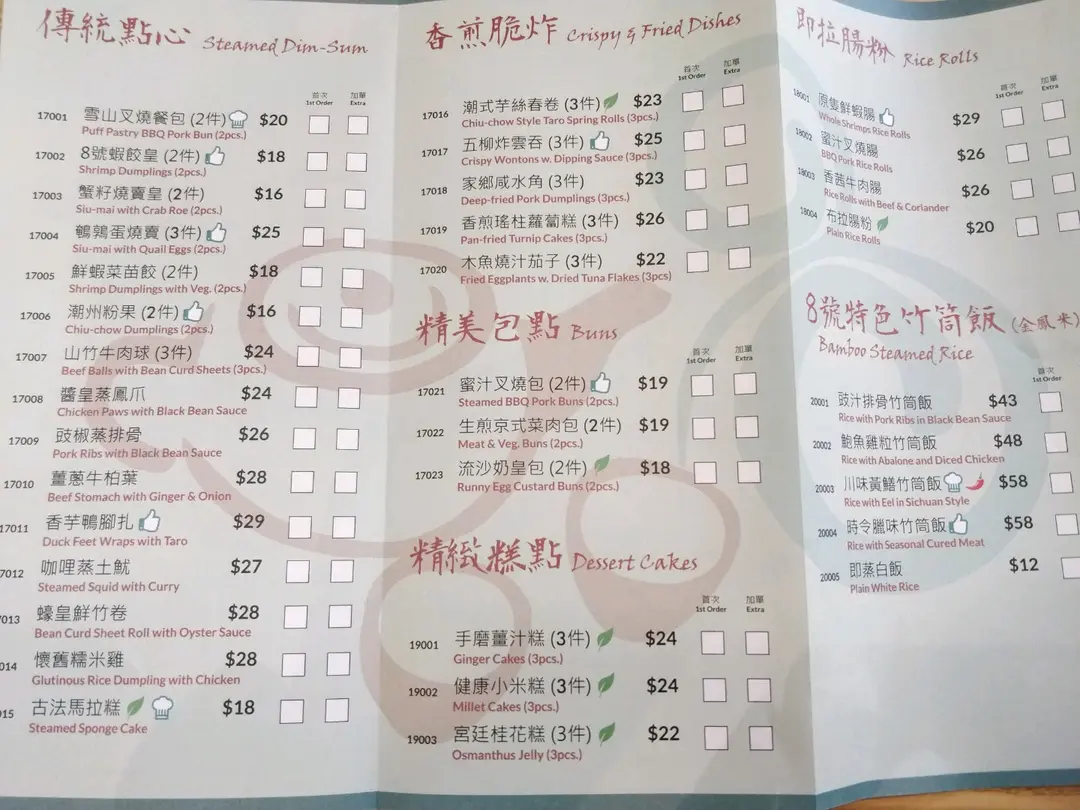 傳統點心 Steamed Dim-Sum
首次 加單
1st Order Extra
17001 雪山叉燒餐包 (2件) $20
Puff Pastry BBQ Pork Bun (2pcs.)
17002 8號蝦餃皇 (2件) $18
Shrimp Dumplings (2pcs.)
17003 蟹籽燒賣皇 (2件) $16
Siu-mai with Crab Roe (2pcs.)
17004 鵪鶉蛋燒賣 (3件) $25
Siu-mai with Quail Eggs (2pcs.)
17005 鮮蝦菜苗餃 (2件) $18
Shrimp Dumplings with Veg. (2pcs.)
17006 潮州粉果 (2件) $16
Chiu-chow Dumplings (2pcs.)
17007 山竹牛肉球 (3件) $24
Beef Balls with Bean Curd Sheets (3pcs.)
17008 醬皇蒸鳳爪 $24
Chicken Paws with Black Bean Sauce
17009 豉椒蒸排骨 $26
Pork Ribs with Black Bean Sauce
17010 薑蔥牛柏葉 $28
Beef Stomach with Ginger & Onion
17011 香芋鴨腳扎 $29
Duck Feet Wraps with Taro
7012 咖哩蒸土魷 $27
Steamed Squid with Curry
7013 蠔皇鮮竹卷 $28
Bean Curd Sheet Roll with Oyster Sauce
014 懷舊糯米雞 $28
Glutinous Rice Dumpling with Chicken
015 古法馬拉糕 $18
Steamed Sponge Cake
香煎脆炸 Crispy & Fried Dishes
首次 加單
1st Order Extra
17016 潮式芋絲春卷 (3件) $23
Chiu-chow Style Taro Spring Rolls (3pcs.)
17017 五柳炸雲吞 (3件) $25
Crispy Wontons w. Dipping Sauce (3pcs.)
17018 家鄉咸水角 (3件) $23
Deep-fried Pork Dumplings (3pcs.)
17019 香煎瑤柱蘿蔔糕 (3件) $26
Pan-fried Turnip Cakes (3pcs.)
17020 木魚燒汁茄子 (3件) $22
Fried Eggplants w. Dried Tuna Flakes (3pcs)
精美包點 Buns
首次 加單
1st Order Extra
17021 蜜汁叉燒包 (2件) $19
Steamed BBQ Pork Buns (2pcs.)
17022 生煎京式菜肉包 (2件) $19
Meat & Veg. Buns (2pcs.)
17023 流沙奶皇包 (2件) $18
Runny Egg Custard Buns (2pcs.)
精緻糕點 Dessert Cakes
首次 加單
1st Order Extra
19001 手磨薑汁糕 (3件) $24
Ginger Cakes (3pcs.)
19002 健康小米糕 (3件) $24
Millet Cakes (3pcs.)
19003 宮廷桂花糕 (3件) $22
Osmanthus Jelly (3pcs.)
即拉腸粉 Rice Rolls
首次 加單
1st Order Extra
18001 原隻鮮蝦腸 $29
Whole Shrimps Rice Rolls
18002 蜜汁叉燒腸 $26
BBQ Pork Rice Rolls
18003 香茜牛肉腸 $26
Rice Rolls with Beef & Coriander
18004 布拉腸粉 $20
Plain Rice Rolls
8號特色竹筒飯 (金鳳米)
Bamboo Steamed Rice
首次
1st Order
20001 豉汁排骨竹筒飯 $43
Rice with Pork Ribs in Black Bean Sauce
20002 鮑魚雞粒竹筒飯 $48
Rice with Abalone and Diced Chicken
20003 川味黃鱔竹筒飯 $58
Rice with Eel in Sichuan Style
20004 時令臘味竹筒飯 $58
Rice with Seasonal Cured Meat
20005 即蒸白飯 $12
Plain White Rice